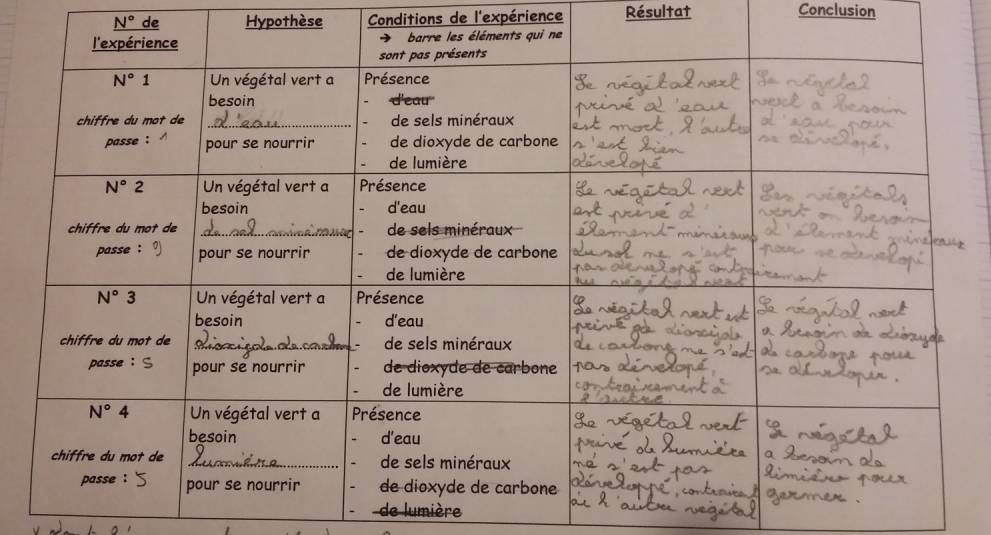 N° de
l'expérience
Hypothèse
Conditions de l'expérience
→ barre les éléments qui ne
sont pas présents
Résultat
Conclusion
N° 1
chiffre du mot de
passe : 1
Un végétal vert a
besoin
d'eau
pour se nourrir
Présence
- d'eau
- de sels minéraux
- de dioxyde de carbone
- de lumière
Le végétal vert
privé d'eau
est mort, l'autre
s'est bien
dévelopé
Le végétal
vert a besoin
d'eau pour
se dévelopé.
N° 2
chiffre du mot de
passe : 9
Un végétal vert a
besoin
de sel minéraux
pour se nourrir
Présence
- d'eau
- de sels minéraux
- de dioxyde de carbone
- de lumière
Le végétal vert
est privé d'
élement minéraux
du sol ne s'est
pas dévelopé contrairement
végétal vert
Les végétals
vert on besoin
d'élement minéraux
pour se dévelopé
N° 3
chiffre du mot de
passe : 5
Un végétal vert a
besoin
dioxigde de carbone
pour se nourrir
Présence
- d'eau
- de sels minéraux
- de dioxyde de carbone
- de lumière
Le végétal vert est
privé de dioxigde
de carbone ne s'est
pas dévelopé,
contrairement à
l'autre
Le végétal vert
a besoin de dioxyde
de carbone pour
se déveloper.
N° 4
chiffre du mot de
passe : 5
Un végétal vert a
besoin
lumière
pour se nourrir
Présence
- d'eau
- de sels minéraux
- de dioxyde de carbone
- de lumière
Le végétal vert
privé de lumière
ne s'est pas
développé, contrairement
à l'autre végétal
Le végétal
a besoin de
limière pour
germer.